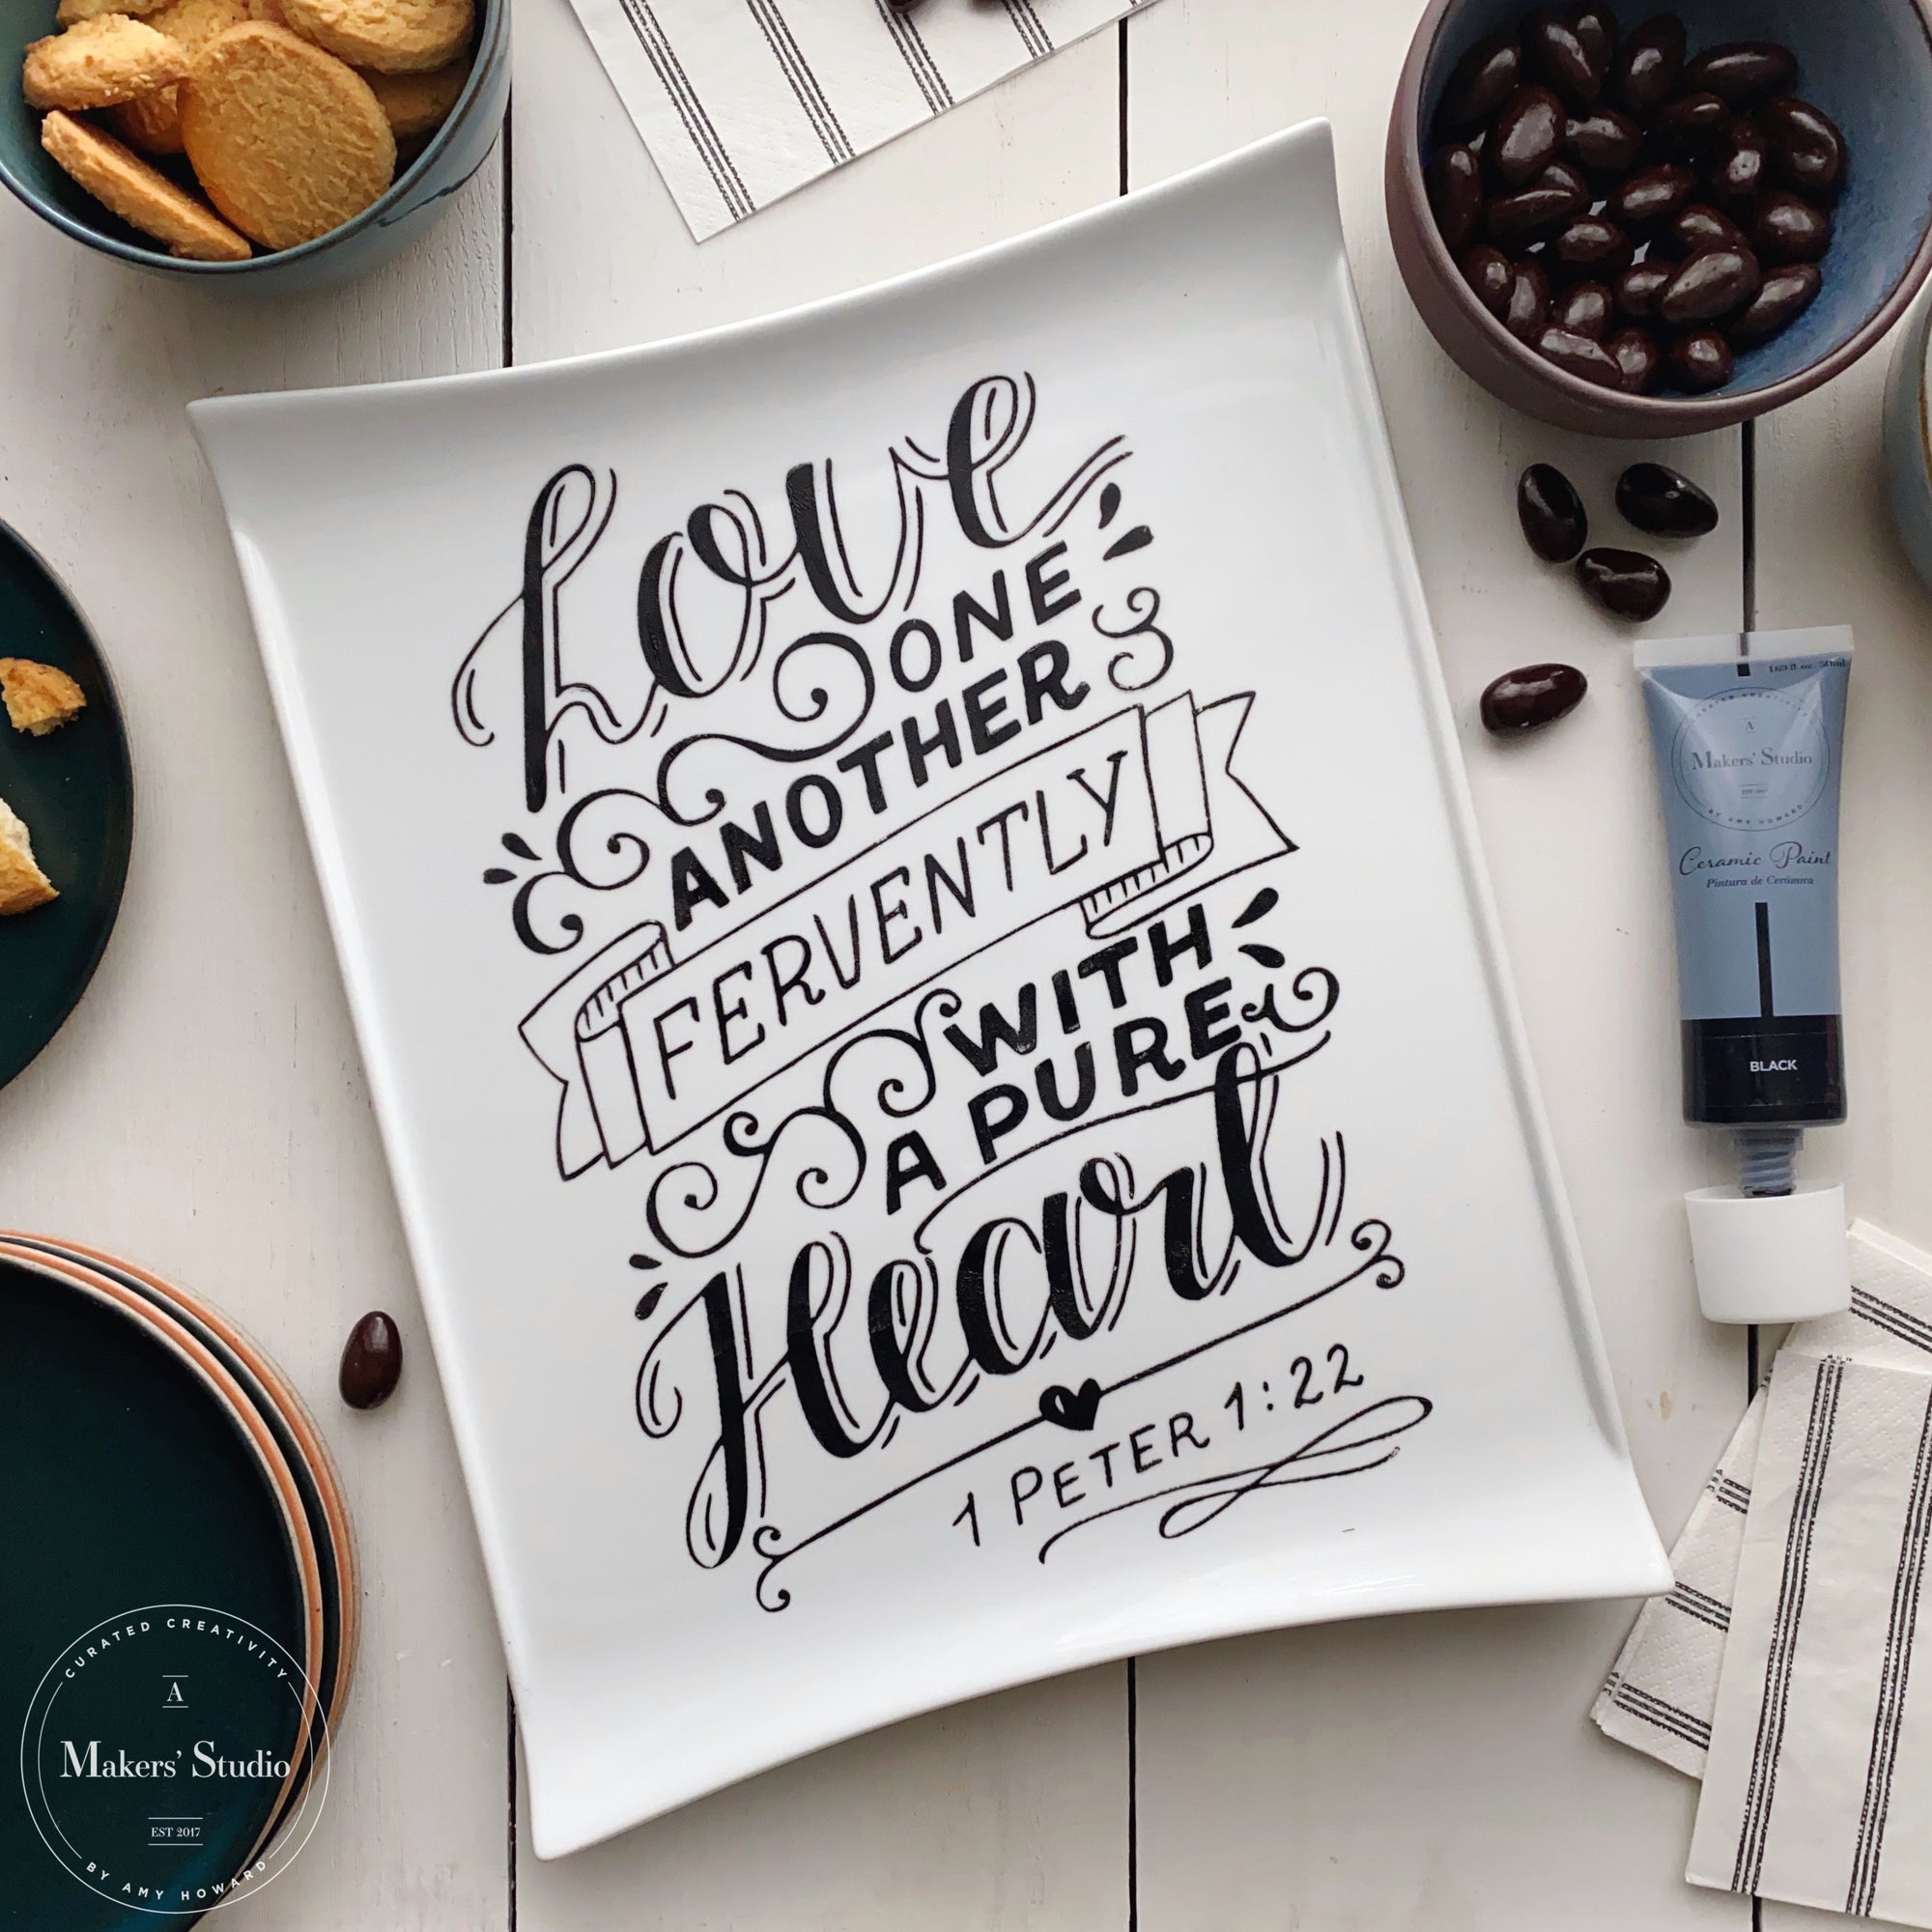 Love
ONE
ANOTHER
FERVENTLY
WITH
A PURE
Heart
1 PETER 1:22
1.69 fl. oz. 50ml
CURATED CREATIVITY
A
Makers' Studio
EST 2017
BY AMY HOWARD
Ceramic Paint
Pintura de Cerámica
BLACK
CURATED CREATIVITY
A
Makers' Studio
EST 2017
BY AMY HOWARD